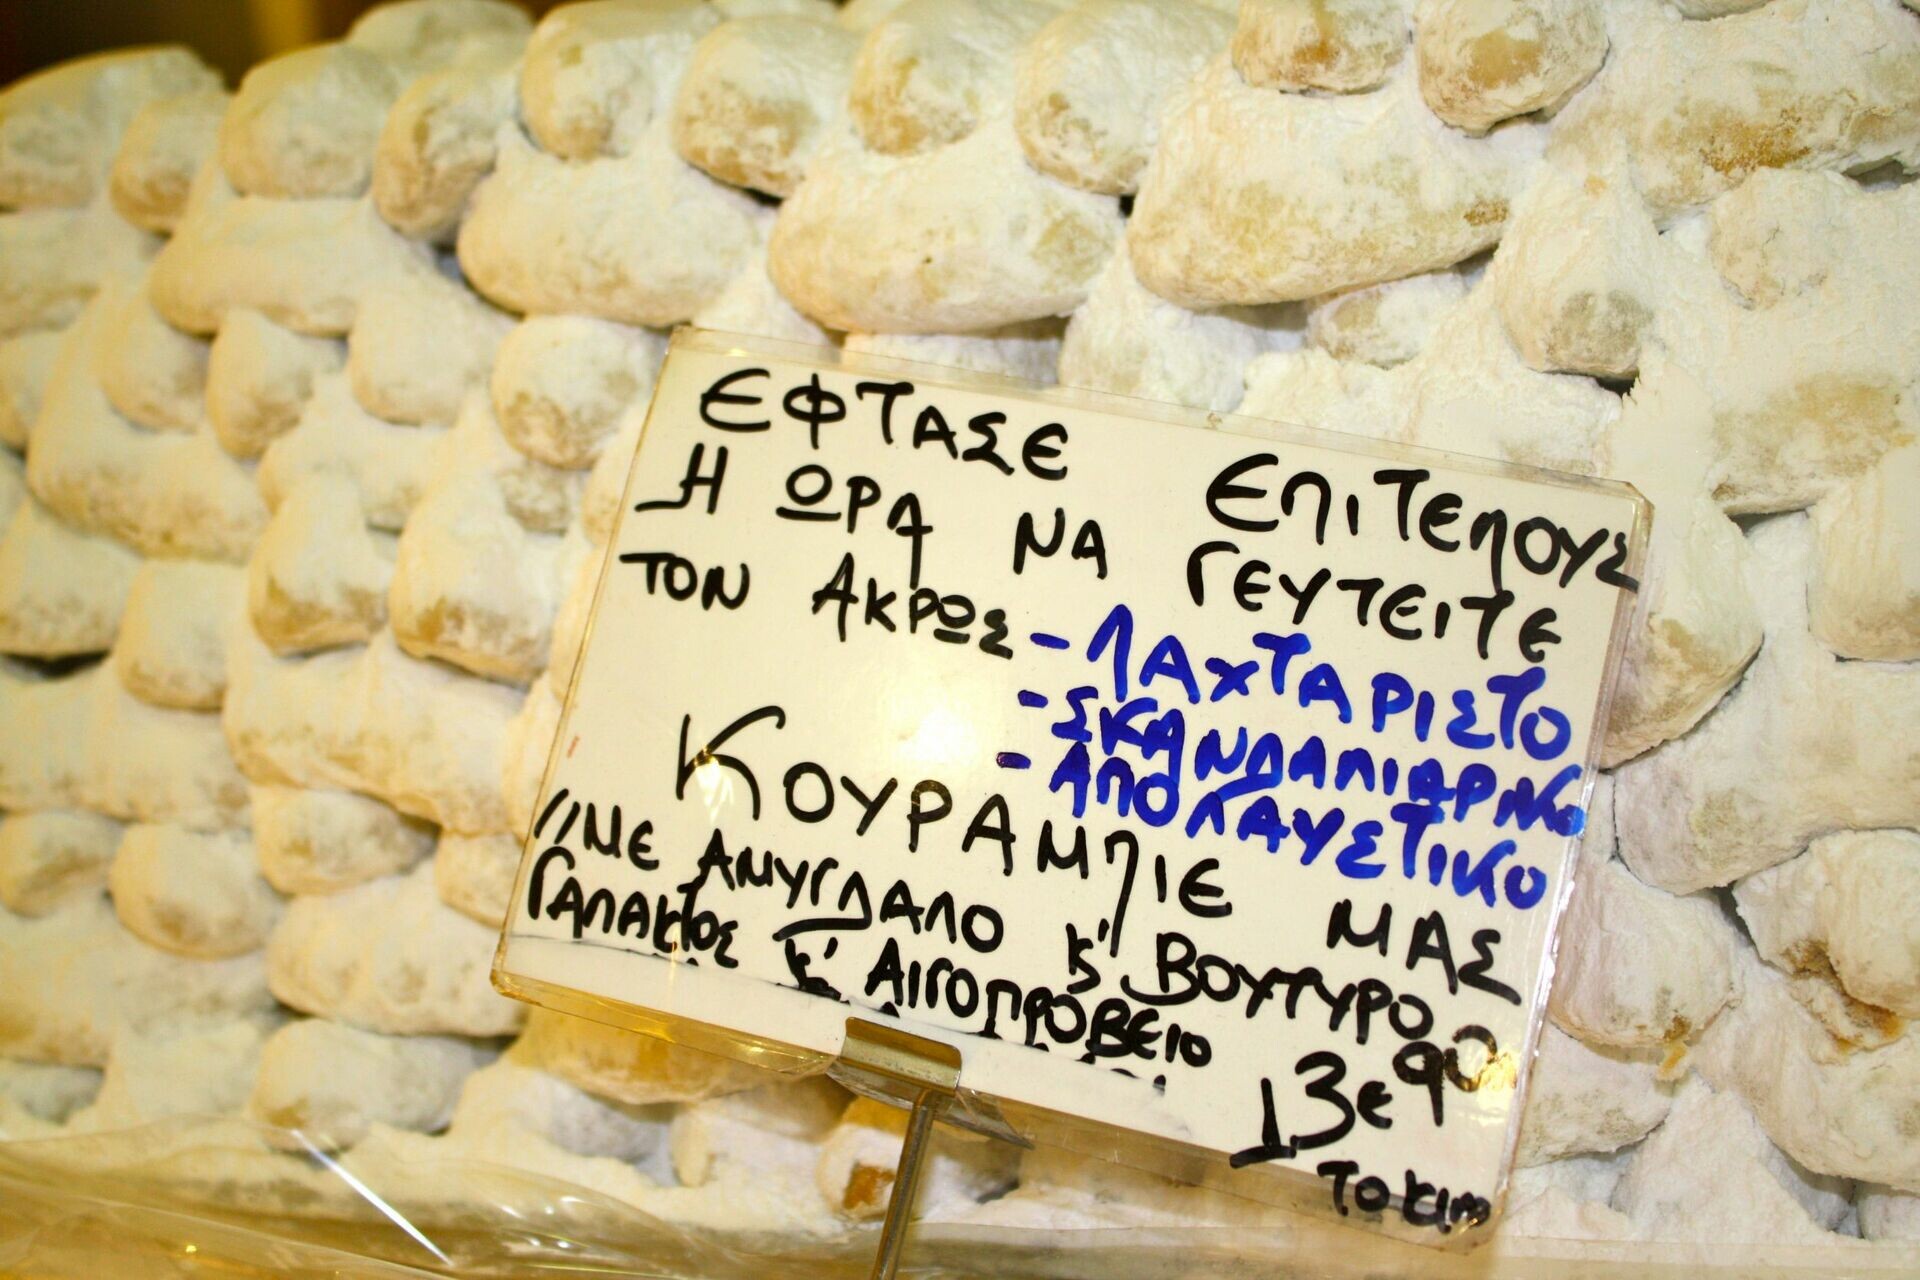 ΕΦΤΑΣΕ ΕΠΙΤΕΛΟΥΣ
Η ΩΡΑ ΝΑ ΓΕΥΤΕΙΤΕ
ΤΟΝ ΑΚΡΩΣ -ΛΑΧΤΑΡΙΣΤΟ
-ΣΚΑΝΔΑΛΙΑΡΙΚΟ
-ΑΠΟΛΑΥΣΤΙΚΟ
ΚΟΥΡΑΜΠΙΕ ΜΑΣ
"ΜΕ ΑΜΥΓΔΑΛΟ Κ' ΒΟΥΤΥΡΟ
ΓΑΛΑΚΤΟΣ Κ' ΑΙΓΟΠΡΟΒΕΙΟ
13€90
ΤΟ ΚΙΛΟ